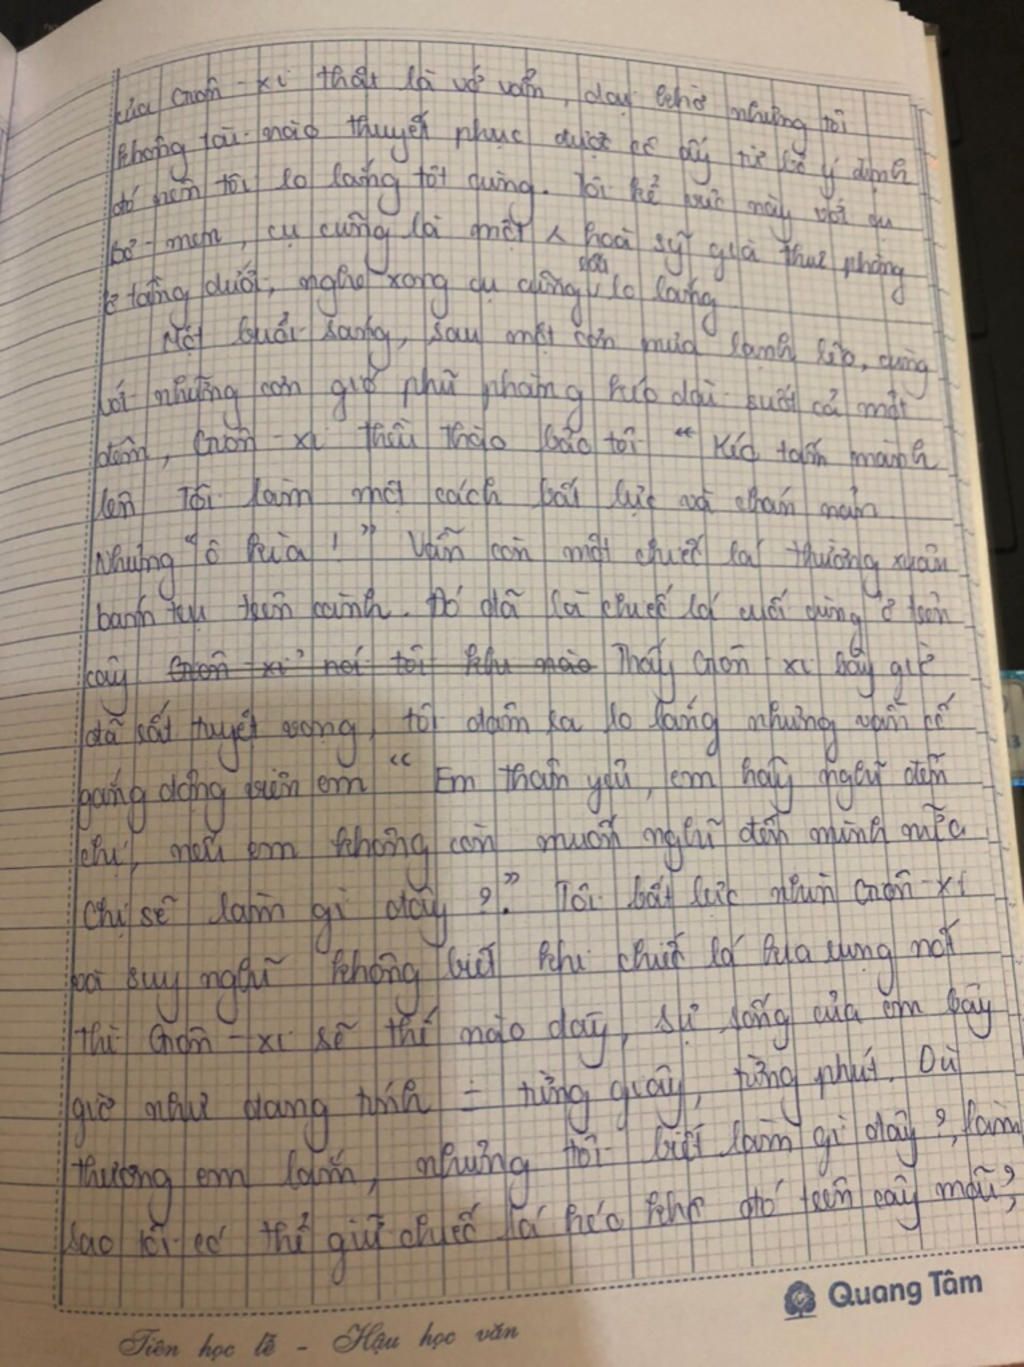 của Giôn-xi thật là vớ vẩn, dại khờ nhưng tôi
không tài nào thuyết phục được cô ấy từ bỏ ý định
đó nên tôi lo lắng tột cùng. Tôi kể việc này với cụ
bơ-men, cụ cũng là một hoạ sỹ già thuê phòng
ở tầng dưới, nghe xong cụ cũng lo lắng
Một buổi sáng, sau một cơn mưa lạnh lẽo, cùng
với những cơn gió phũ phàng kéo dài suốt cả một
đêm, Giôn-xi thều thào bảo tôi "Kéo tấm mành
lên Tôi làm một cách bất lực và chán nản
Nhưng "ô kìa!" Vẫn còn một chiếc lá thường xuân
bám trụ trên cành. Đó đã là chiếc lá cuối cùng ở trên
cây Giôn-xi nói tôi khi nào Thấy Giôn xi bây giờ
đã rất tuyệt vọng, tôi dâm ra lo lắng nhưng vẫn cố
gắng động viên em "Em thân yêu, em hãy nghĩ đến
chị, nếu em không còn muốn nghĩ đến mình nữa
Chị sẽ làm gì đây?". Tôi bất lực nhìn Giôn-xi
và suy nghĩ không biết khi chiếc lá kia rụng nốt
thì Giôn-xi sẽ thế nào đây, sự sống của em bây
giờ như đang tính = từng giây, từng phút. Dù
thương em lắm, nhưng tôi biết làm gì đây?, làm
sao tôi có thể giữ chiếc lá héo khô đó trên cây mãi?,
Quang Tâm
Tiên học lễ - Hậu học văn